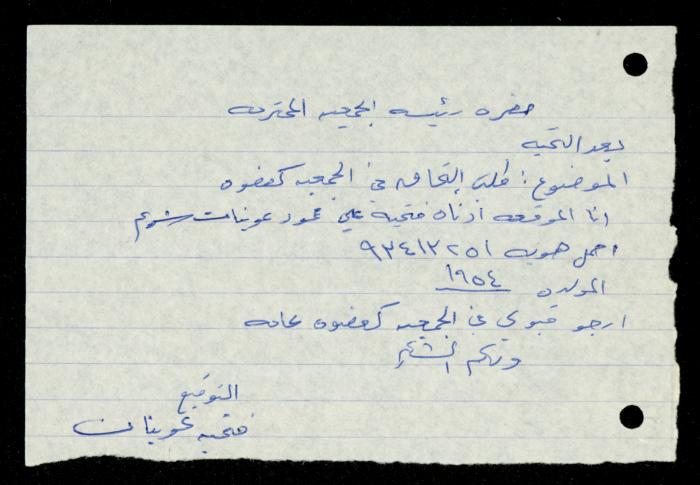 حضره رئيسه الجمعيه المحترمه
بعد التحيه
الموضوع : طلب إلتحاق في الجمعيه كعضوه
انا الموقعه ادناه فتحيه علي محمود عوينات
احمل هويه ٩٣٤١٢٢٥١
المولده ١٩٥٤
ارجو قبولي في الجمعيه كعضوه عامه
ولكم الشكر
التوقيع
فتحيه عوينات